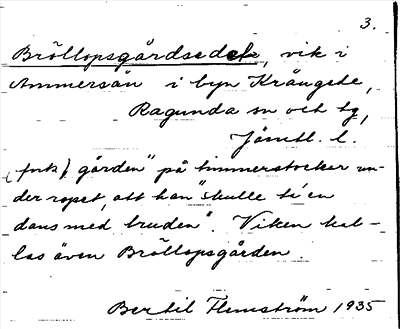 3.
Bröllopsgårdsedet, vik i
Ammersån i byn Krångede,
Ragunda sn och tg,
Jämtl. l.
(forts.) gården" på timmerstockar un-
der ropet, att han "skulle ti'en
dans med bruden". Viken kal-
las även Bröllopsgården.
Bertil Flemström 1935